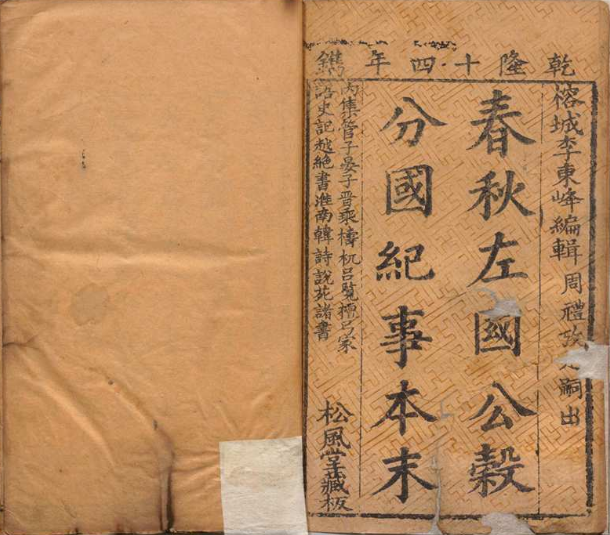 乾隆十四年鐫
榕城李東峰編輯 周禮攷 嗣出
春秋左國公穀
分國紀事本末
內集管子晏子晋乘檮杌呂覽檀弓家
語史記越絕書淮南韓詩說苑諸書
松風堂藏板